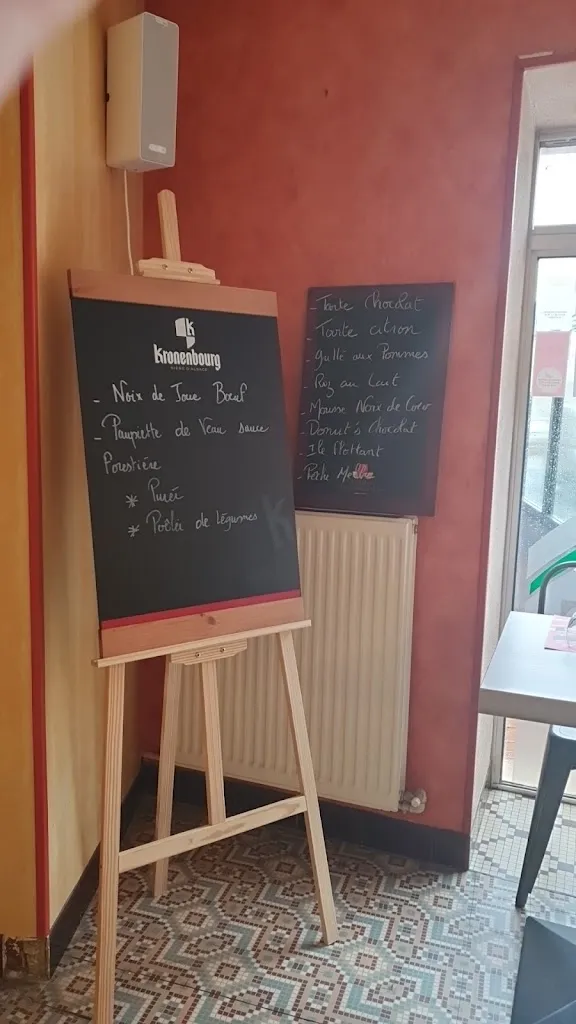 Kronenbourg
- Noix de Joue Bœuf
- Paupiette de Veau sauce
Forestière
* Purée
* Poêlée de légumes
- Tarte Chocolat
- Tarte citron
- Gullé aux Pommes
- Riz au Lait
- Mousse Noix de Coco
- Donut's Chocolat
- Ile Flottant
- Pêche